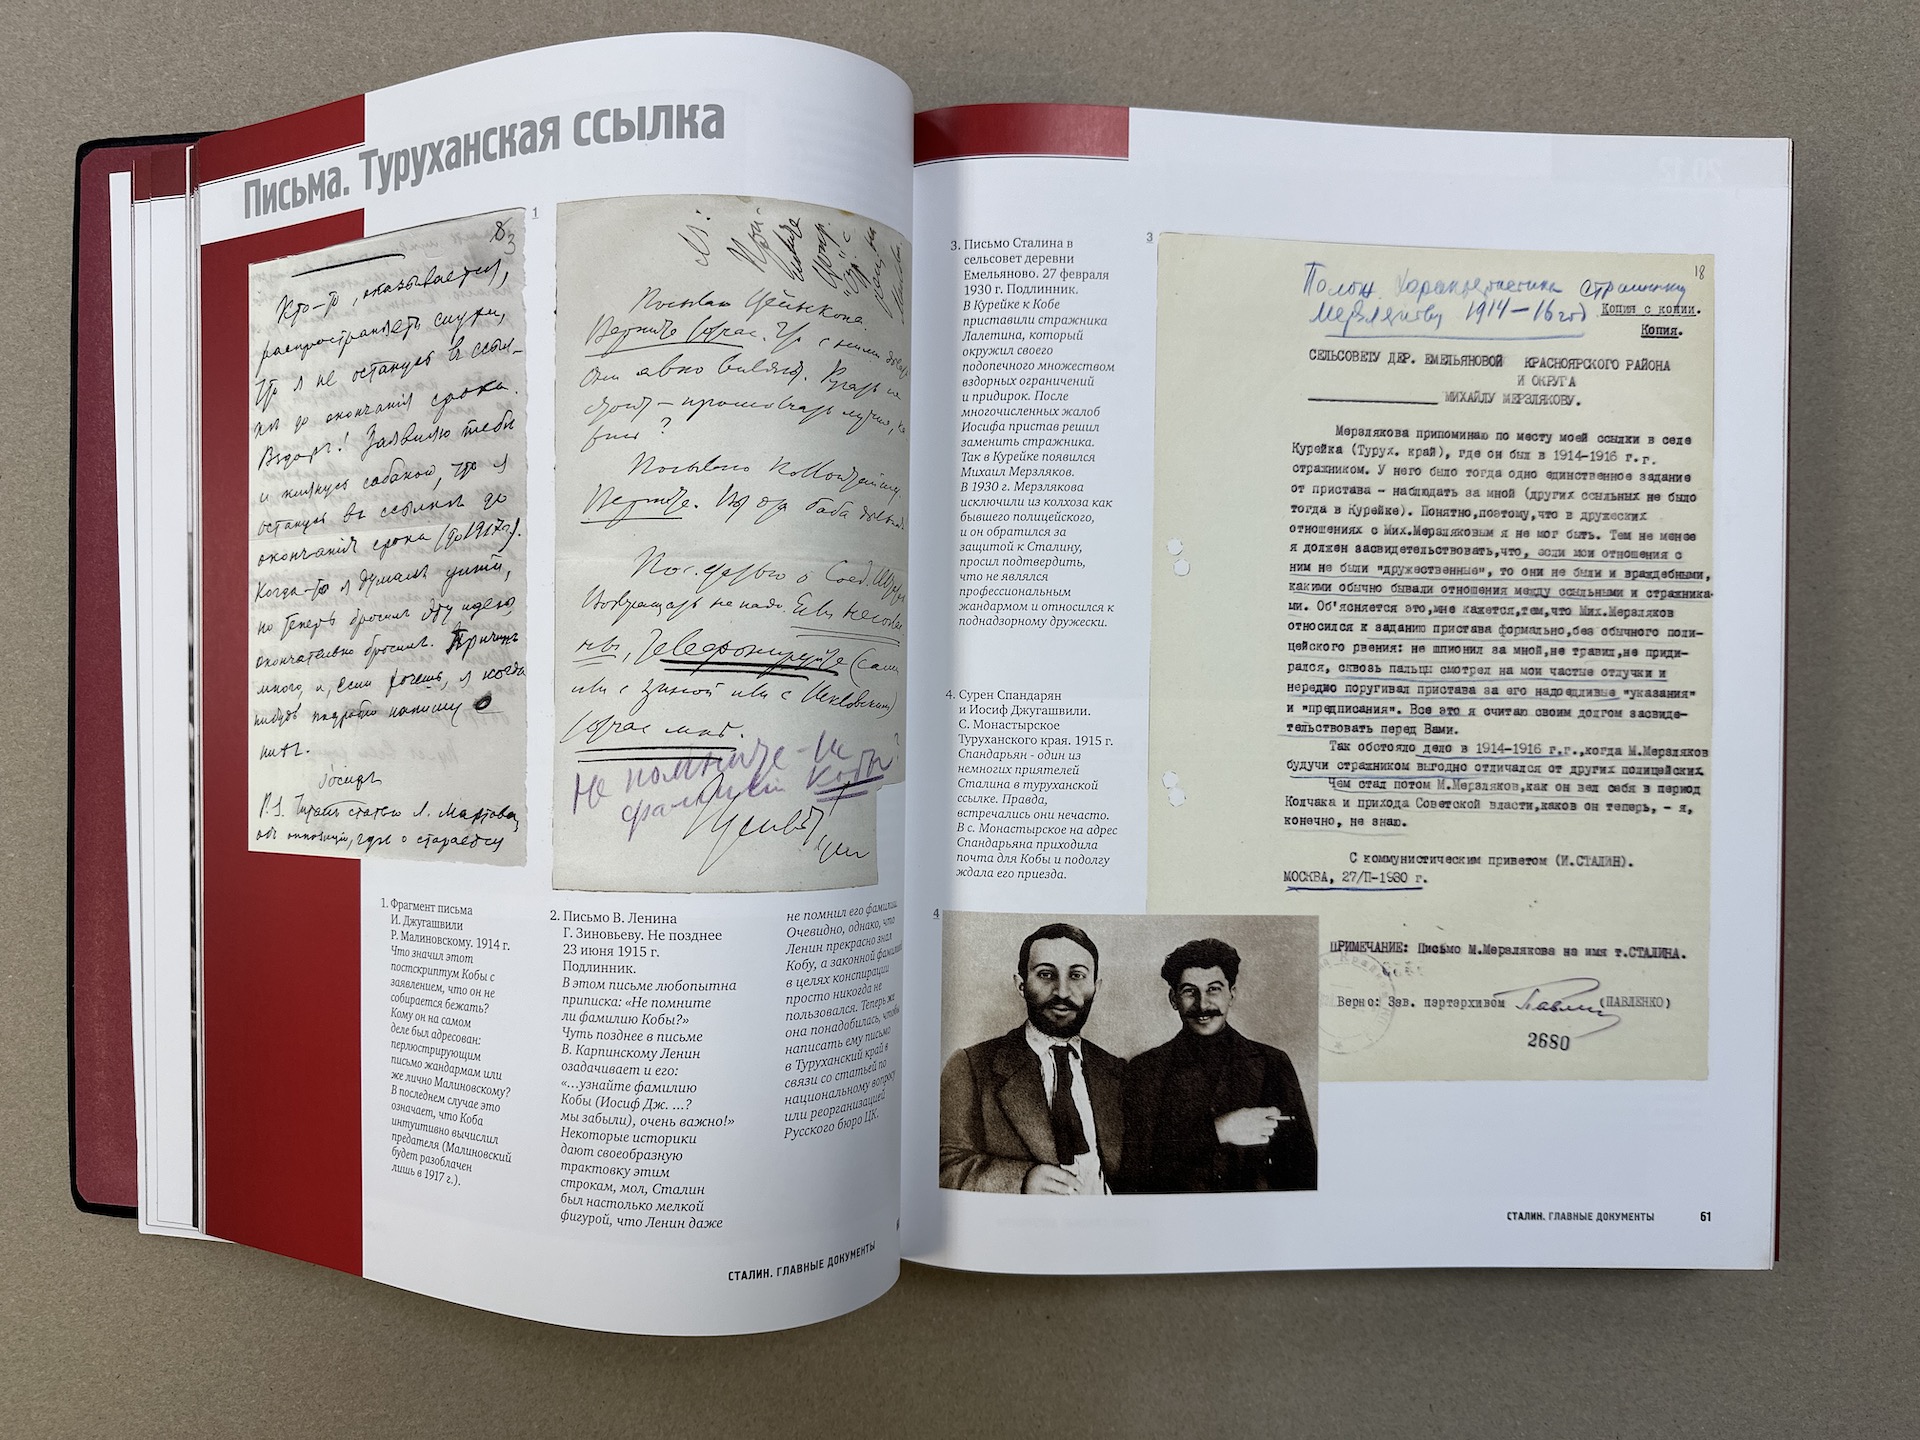 Письма. Туруханская ссылка
1
83
Кто-то, оказывается,
распространяет слухи,
что я не останусь в ссыл-
ке до окончания срока.
Вздор! Заявляю тебе
и клянусь собакой, что я
останусь в ссылке до
окончания срока (до 1917 г.).
Когда-то я думал уйти,
но теперь бросил эту идею,
окончательно бросил. Причин
много, и, если хочешь, я когда
нибудь подробно напишу о
них.
Иосиф
P.S.
Посылаю
Верните
Посылаю
Верните.
Возвращать не надо.
Телефонируйте
Не помните ли
фамилии Кобы?
1. Фрагмент письма
И. Джугашвили
Р. Малиновскому. 1914 г.
Что значил этот
постскриптум Кобы с
заявлением, что он не
собирается бежать?
Кому он на самом
деле был адресован:
перлюстрирующим
письмо жандармам или
же лично Малиновскому?
В последнем случае это
означает, что Коба
интуитивно вычислил
предателя (Малиновский
будет разоблачен
лишь в 1917 г.).
2. Письмо В. Ленина
Г. Зиновьеву. Не позднее
23 июня 1915 г.
Подлинник.
В этом письме любопытна
приписка: «Не помните
ли фамилию Кобы?»
Чуть позднее в письме
В. Карпинскому Ленин
озадачивает и его:
«...узнайте фамилию
Кобы (Иосиф Дж. ...?
мы забыли), очень важно!»
Некоторые историки
дают своеобразную
трактовку этим
строкам, мол, Сталин
был настолько мелкой
фигурой, что Ленин даже
не помнил его фамилии.
Очевидно, однако, что
Ленин прекрасно знал
Кобу, а законной фамилией
в целях конспирации
просто никогда не
пользовался. Теперь же
она понадобилась, чтобы
написать ему письмо
в Туруханский край в
связи со статьей по
национальному вопросу
или реорганизацией
Русского бюро ЦК.
СТАЛИН. ГЛАВНЫЕ ДОКУМЕНТЫ
3. Письмо Сталина в
сельсовет деревни
Емельяново. 27 февраля
1930 г. Подлинник.
В Курейке к Кобе
приставили стражника
Лалетина, который
окружил своего
подопечного множеством
вздорных ограничений
и придирок. После
многочисленных жалоб
Иосифа пристав решил
заменить стражника.
Так в Курейке появился
Михаил Мерзляков.
В 1930 г. Мерзлякова
исключили из колхоза как
бывшего полицейского,
и он обратился за
защитой к Сталину,
просил подтвердить,
что не являлся
профессиональным
жандармом и относился к
поднадзорному дружески.
4. Сурен Спандарян
и Иосиф Джугашвили.
С. Монастырское
Туруханского края. 1915 г.
Спандарьян - один из
немногих приятелей
Сталина в туруханской
ссылке. Правда,
встречались они нечасто.
В с. Монастырское на адрес
Спандарьяна приходила
почта для Кобы и подолгу
ждала его приезда.
4
3
18
Полож. характеристика стражнику
Мерзлякову 1914-16 год
Копия с копии.
Копия.
СЕЛЬСОВЕТУ ДЕР. ЕМЕЛЬЯНОВОЙ КРАСНОЯРСКОГО РАЙОНА
И ОКРУГА
МИХАЙЛУ МЕРЗЛЯКОВУ.
Мерзлякова припоминаю по месту моей ссылки в селе
Курейка (Турух. край), где он был в 1914-1916 г.г.
стражником. У него было тогда одно единственное задание
от пристава - наблюдать за мной (других ссыльных не было
тогда в Курейке). Понятно,поэтому,что в дружеских
отношениях с Мих.Мерзляковым я не мог быть. Тем не менее
я должен засвидетельствовать,что, если мои отношения с
ним не были "дружественные", то они не были и враждебными,
какими обычно бывали отношения между ссыльными и стражника-
ми. Об'ясняется это,мне кажется,тем,что Мих.Мерзляков
относился к заданию пристава формально,без обычного поли-
цейского рвения: не шпионил за мной,не травил,не приди-
рался, сквозь пальцы смотрел на мои частые отлучки и
нередко поругивал пристава за его надоедливые "указания"
и "предписания". Все это я считаю своим долгом засвиде-
тельствовать перед Вами.
Так обстояло дело в 1914-1916 г.г.,когда М.Мерзляков
будучи стражником выгодно отличался от других полицейских.
Чем стал потом М.Мерзляков,как он вел себя в период
Колчака и прихода Советской власти,каков он теперь, - я,
конечно, не знаю.
С коммунистическим приветом (И.СТАЛИН).
МОСКВА, 27/П-1930 г.
ПРИМЕЧАНИЕ: Письмо М.Мерзлякова на имя т.СТАЛИНА.
Верно: Зав. партархивом (ПАВЛЕНКО)
2680
СТАЛИН. ГЛАВНЫЕ ДОКУМЕНТЫ 61